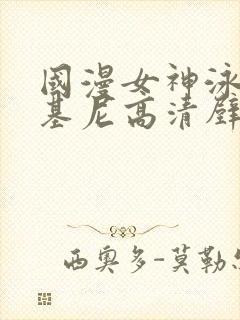 國漫女神泳
基尼高清壁
西奧多-莫勒